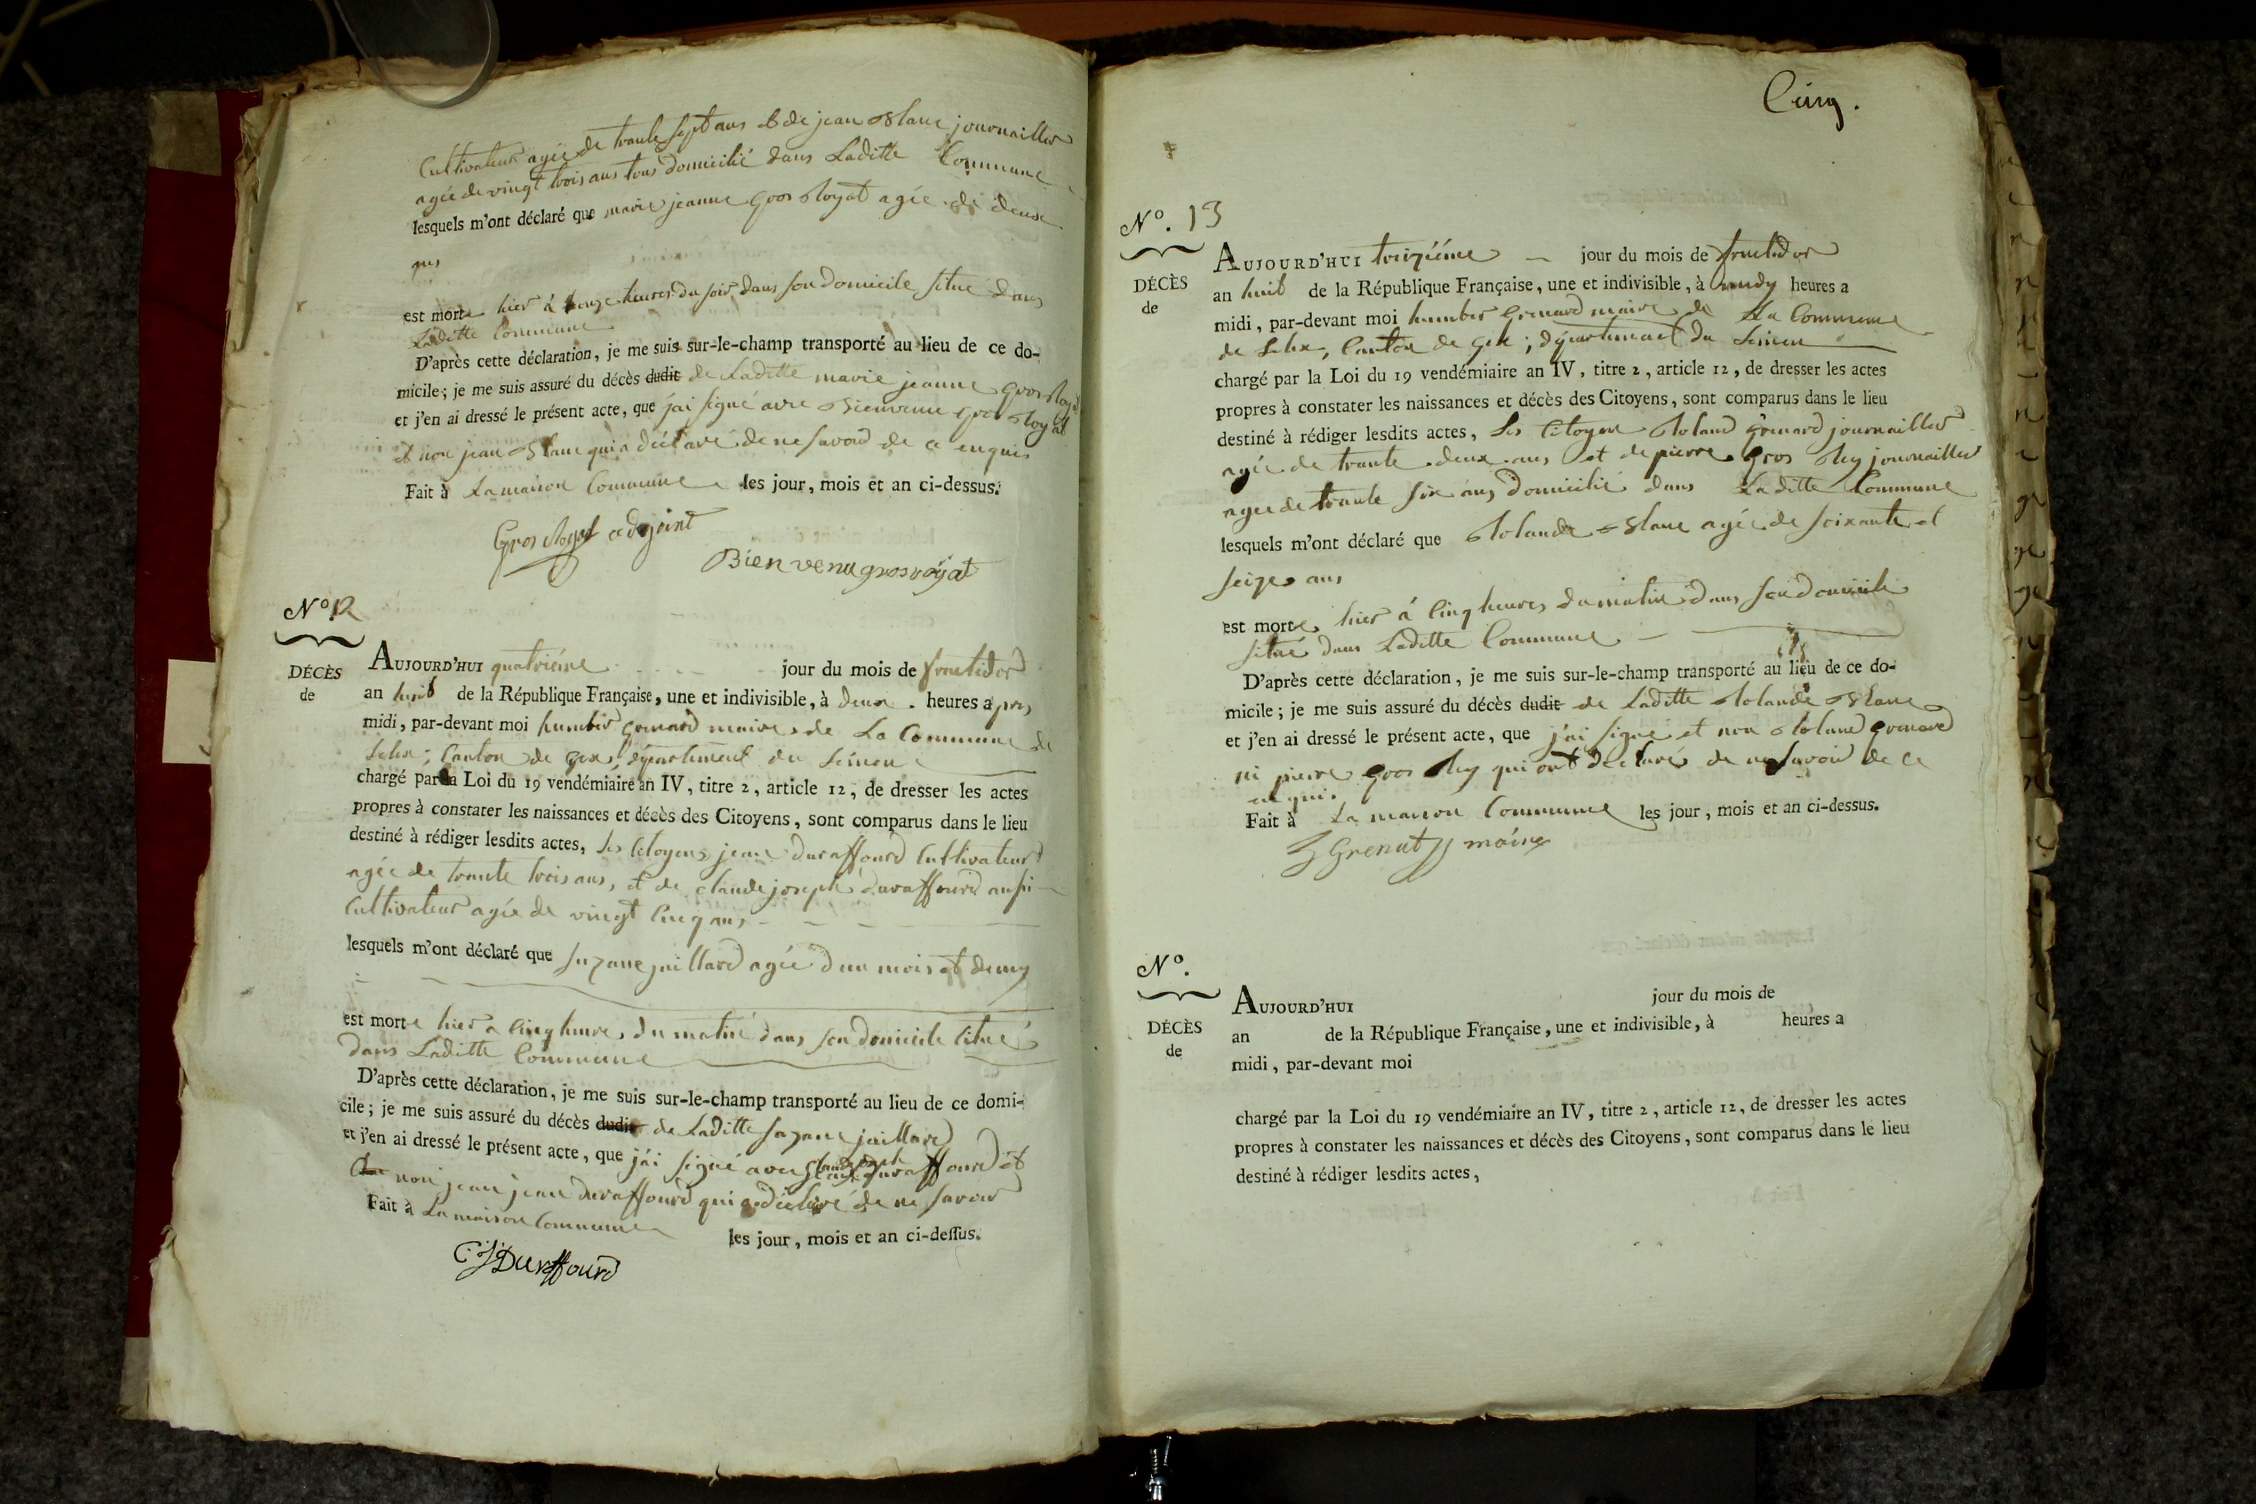 Cultivateur agée de trante sept ans et de jean Blanc journailler
agée de vingt trois ans tous domicilié dans Laditte Commune
lesquels m'ont déclaré que marie jeanne gros Royat agée de deux
ans
est morte hier à onze heures du soir dans son domicile situé dans
Laditte Commune
D'après cette déclaration, je me suis sur-le-champ transporté au lieu de ce do-
micile; je me suis assuré du décès dudit de Laditte marie jeanne gros Royat
et j'en ai dressé le présent acte, que j'ai signé avec Bienvenu gros Royat
et non jean Blanc qui a déclaré de ne savoir de ce enquis
Fait à La maison Commune les jour, mois et an ci-dessus.
Gros Royat adjoint
Bien venu gros royat
No. 12
DÉCÈS
de
AUJOURD'HUI quatriéme jour du mois de fructidor
an huit de la République Française, une et indivisible, à deux heures apres
midi, par-devant moi humber grenard maire de La Commune de
Lelex; Canton de gex, département du Léman
chargé par la Loi du 19 vendémiaire an IV, titre 2, article 12, de dresser les actes
propres à constater les naissances et décès des Citoyens, sont comparus dans le lieu
destiné à rédiger lesdits actes, Les Citoyens jean duraffourd Cultivateur
agée de trante trois ans, et de claude joseph duraffourd aussi
Cultivateur agée de vingt Cinq ans
lesquels m'ont déclaré que suzane jaillard agée d'un mois et demy
est morte hier a Cinq heures du matin dans son domicile situé
dans Laditte Commune
D'après cette déclaration, je me suis sur-le-champ transporté au lieu de ce domi-
cile; je me suis assuré du décès dudit de Laditte suzane jaillard
et j'en ai dressé le présent acte, que j'ai signé avec claude joseph duraffourd et
non jean jean duraffourd qui a déclaré de ne savoir
Fait à La maison Commune les jour, mois et an ci-dessus.
C:J: Duraffourd
Cinq.
No. 13
DÉCÈS
de
AUJOURD'HUI treiziéme jour du mois de fructidor
an huit de la République Française, une et indivisible, à heures a
midi, par-devant moi humber grenard maire de La Commune
de Lelex, Canton de gex; département du Léman
chargé par la Loi du 19 vendémiaire an IV, titre 2, article 12, de dresser les actes
propres à constater les naissances et décès des Citoyens, sont comparus dans le lieu
destiné à rédiger lesdits actes, Les Citoyens Roland grenard journailler
agée de trante deux ans et de pierre gros Rey journailler
agée de trante six ans domicilié dans Laditte Commune
lesquels m'ont déclaré que Rolande Blanc agée de soixante et
seize ans
est morte hier à Cinq heures du matin dans son domicile
situé dans Laditte Commune
D'après cette déclaration, je me suis sur-le-champ transporté au lieu de ce do-
micile; je me suis assuré du décès dudit de Laditte Rolande Blanc
et j'en ai dressé le présent acte, que j'ai signé et non Roland grenard
ni pierre gros Rey qui ont déclaré de ne savoir de ce
enquis.
Fait à La maison Commune les jour, mois et an ci-dessus.
maire
No.
DÉCÈS
de
AUJOURD'HUI jour du mois de
an de la République Française, une et indivisible, à heures a
midi, par-devant moi
chargé par la Loi du 19 vendémiaire an IV, titre 2, article 12, de dresser les actes
propres à constater les naissances et décès des Citoyens, sont comparus dans le lieu
destiné à rédiger lesdits actes,